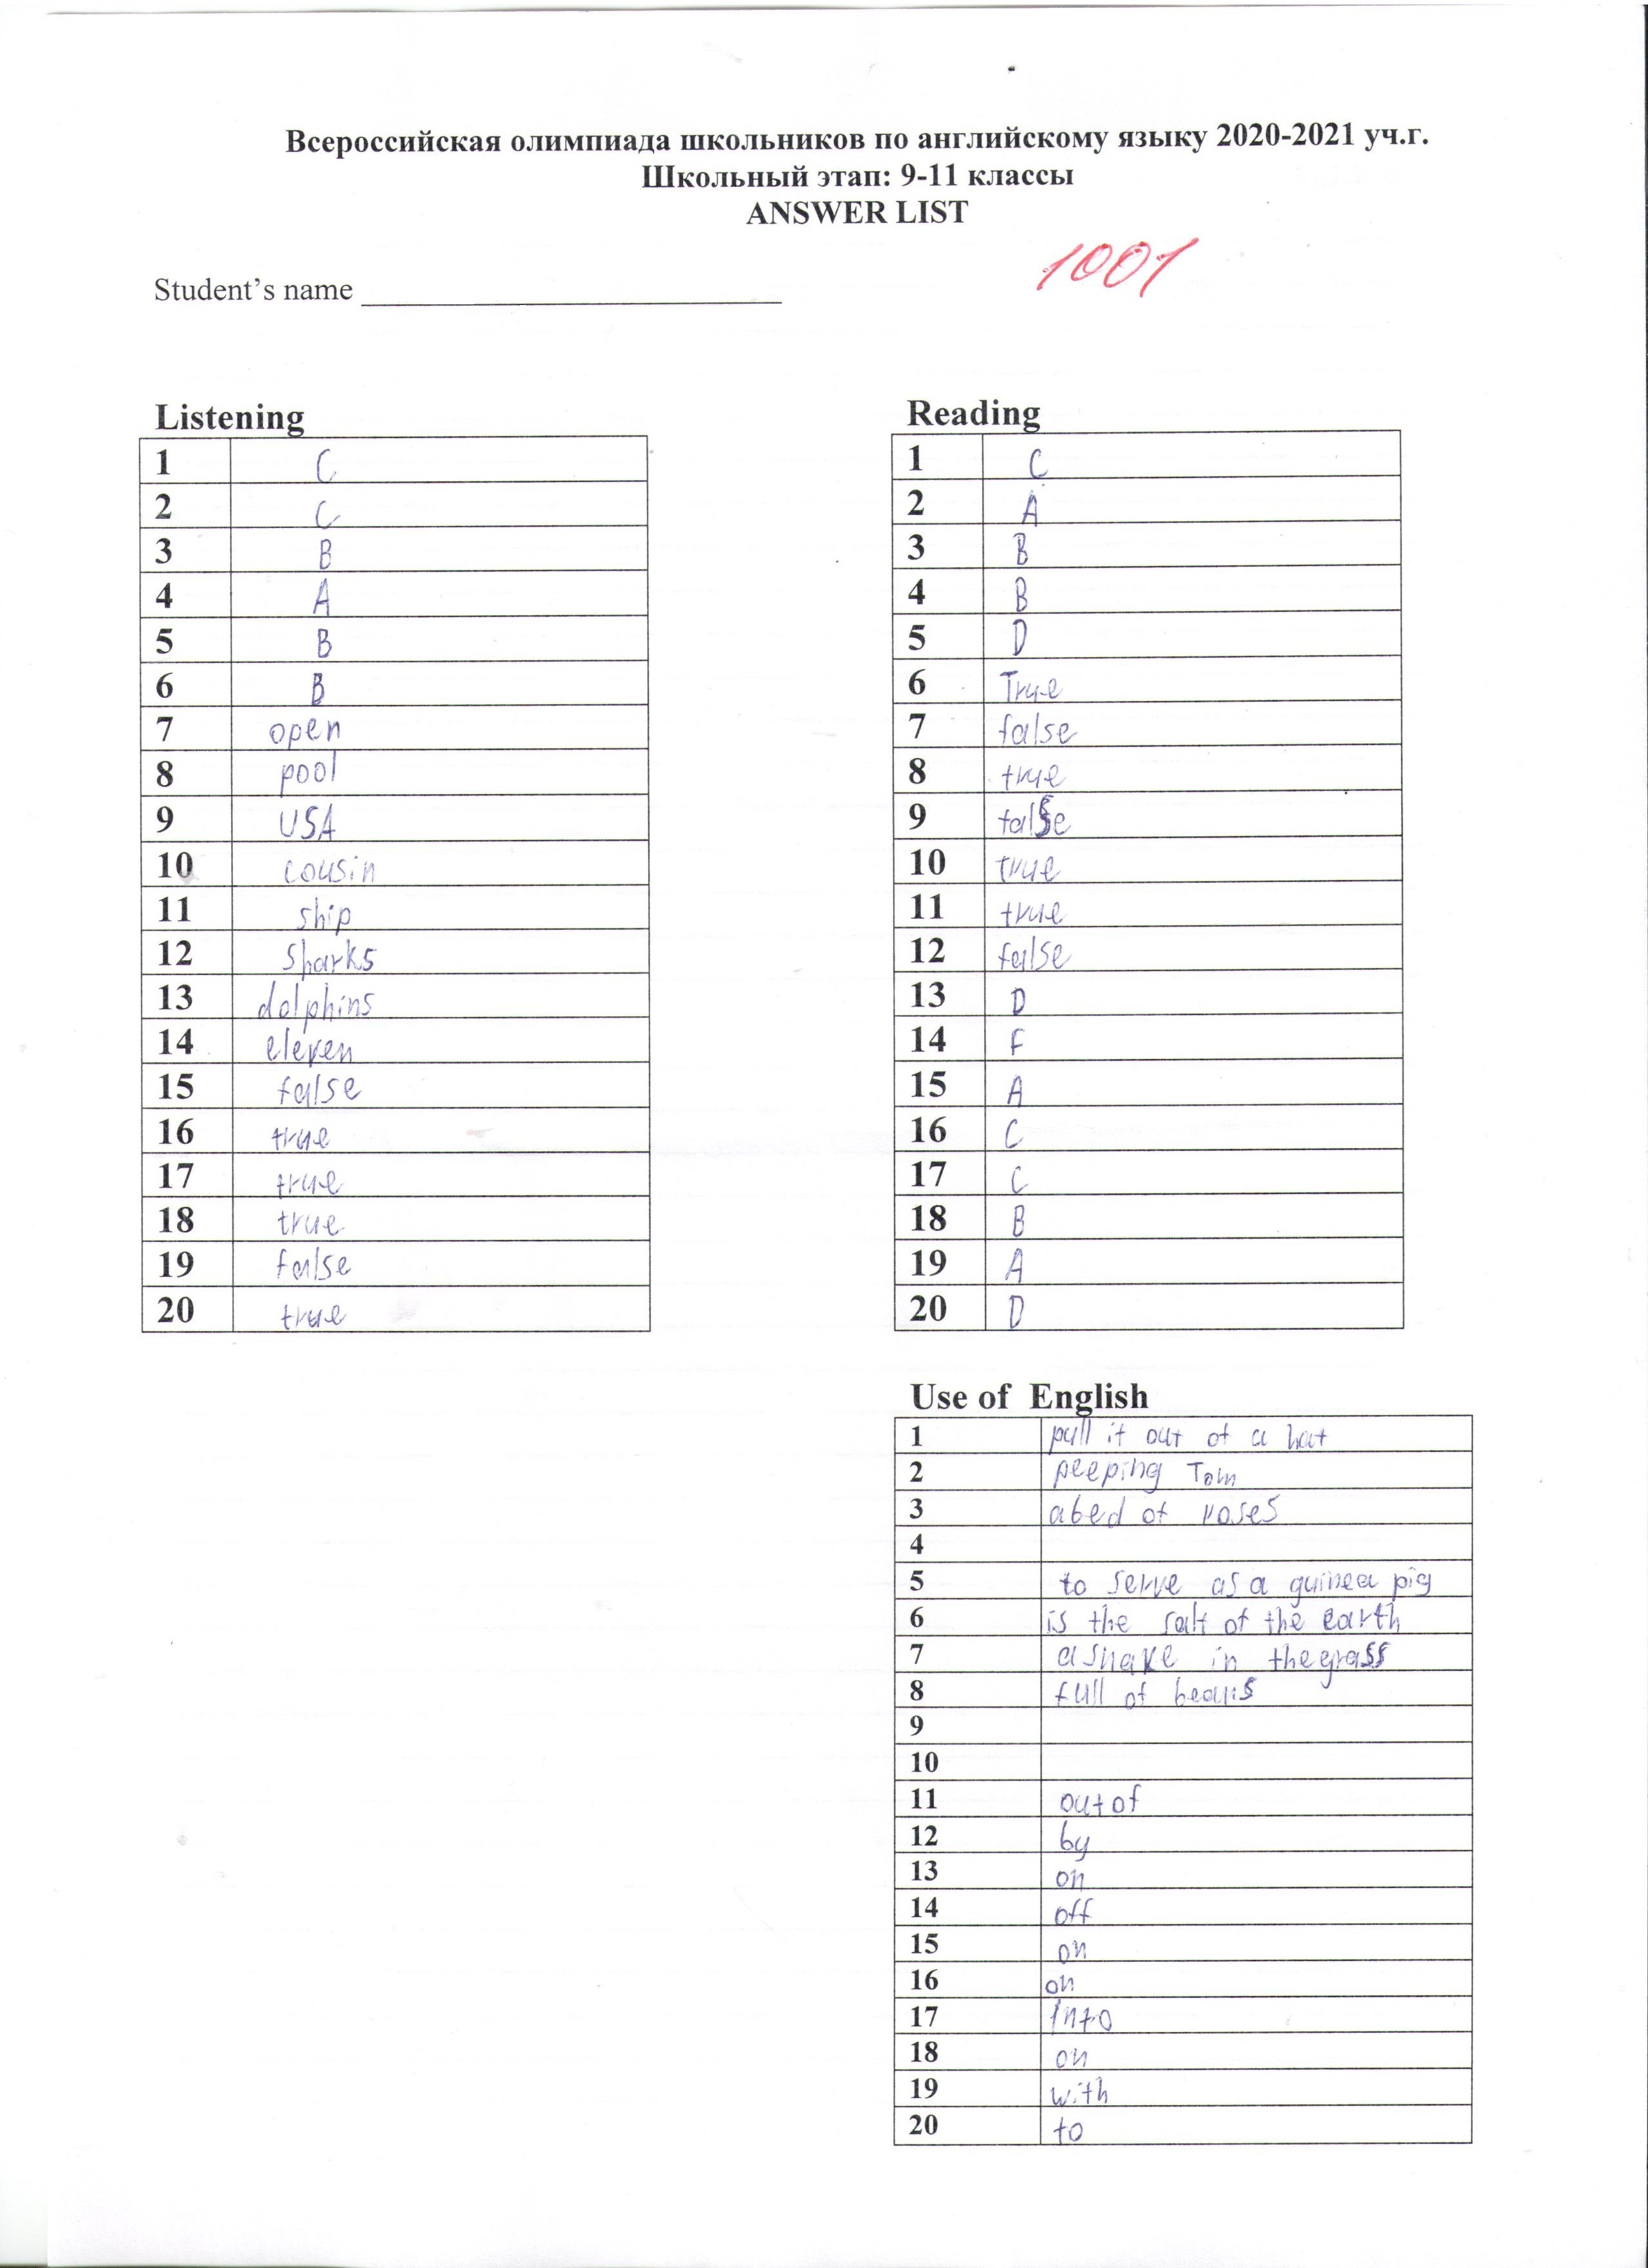 Всероссийская олимпиада школьников по английскому языку 2020-2021 уч.г.
Школьный этап: 9-11 классы
ANSWER LIST
1001
Student's name
Listening
1 C
2 C
3 B
4 A
5 B
6 B
7 open
8 pool
9 USA
10 cousin
11 ship
12 sharks
13 dolphins
14 eleven
15 false
16 true
17 true
18 true
19 false
20 true
Reading
1 C
2 A
3 B
4 B
5 D
6 True
7 false
8 true
9 false
10 true
11 true
12 false
13 D
14 F
15 A
16 C
17 C
18 B
19 A
20 D
Use of English
1 pull it out of a hat
2 peeping Tom
3 a bed of roses
4
5 to serve as a guinea pig
6 is the salt of the earth
7 a snake in the grass
8 full of beans
9
10
11 out of
12 by
13 on
14 off
15 on
16 on
17 into
18 on
19 with
20 to